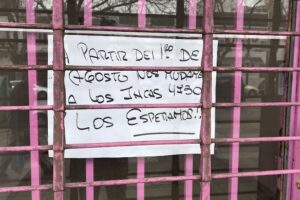 A PARTIR DEL 1RO DE
AGOSTO NOS MUDAMOS
A LOS INCAS 4750
LOS ESPERAMOS!!